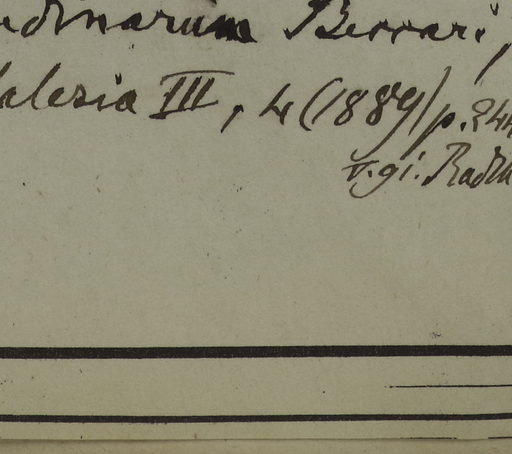 ndinarum Beccari,
alesia III, 4 (1889) p. 244
v. gi: